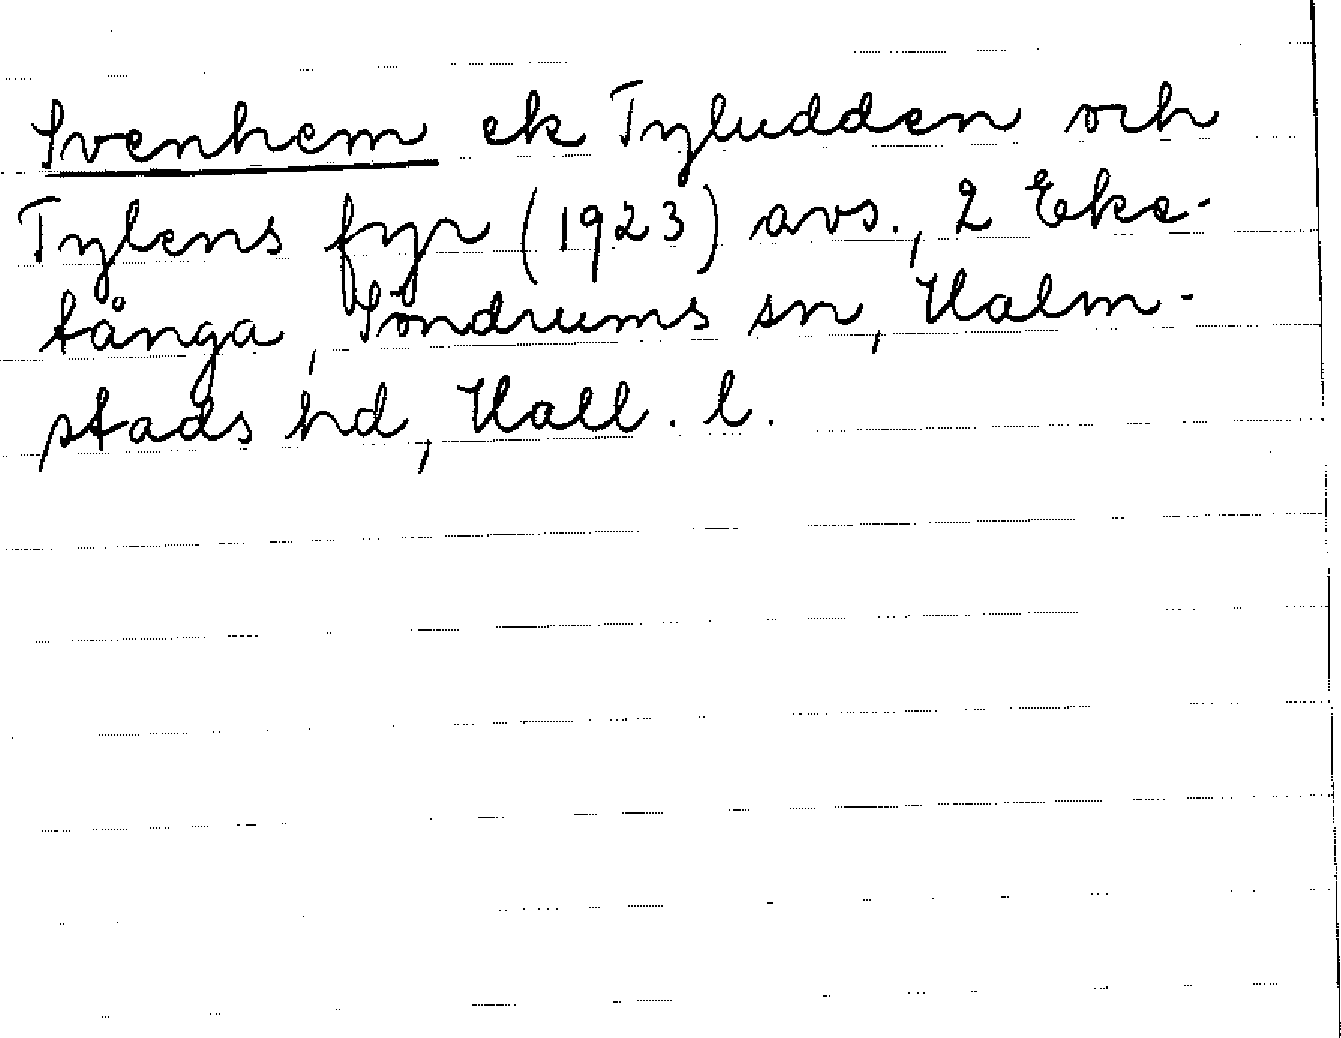 Svenhem ek Tyludden och
Tylens fyr (1923) avs., 2 Eke-
tånga, Söndrums sn, Halm-
stads hd, Hall. l.